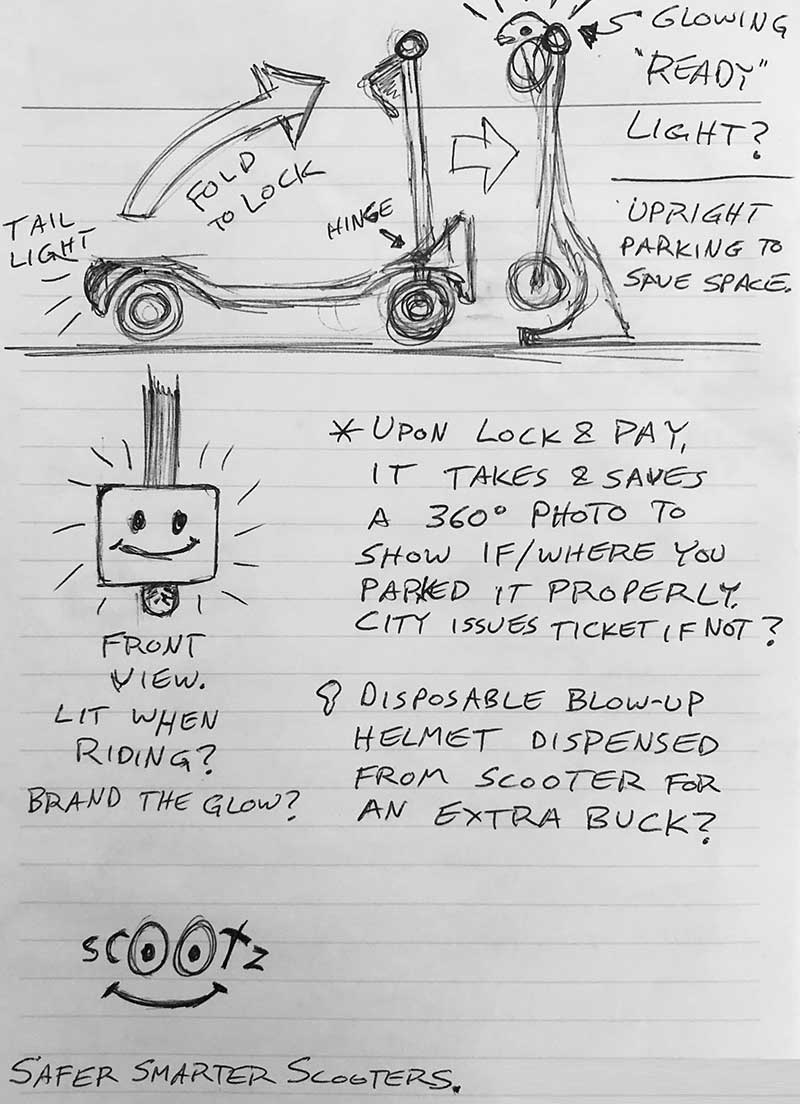 GLOWING
"READY"
LIGHT?
UPRIGHT
PARKING TO
SAVE SPACE.
FOLD
TO LOCK
HINGE
TAIL
LIGHT
* UPON LOCK & PAY,
IT TAKES & SAVES
A 360° PHOTO TO
SHOW IF/WHERE YOU
PARKED IT PROPERLY.
CITY ISSUES TICKET IF NOT?
FRONT
VIEW.
LIT WHEN
RIDING?
BRAND THE GLOW?
DISPOSABLE BLOW-UP
HELMET DISPENSED
FROM SCOOTER FOR
AN EXTRA BUCK?
SCOOTZ
SAFER SMARTER SCOOTERS.